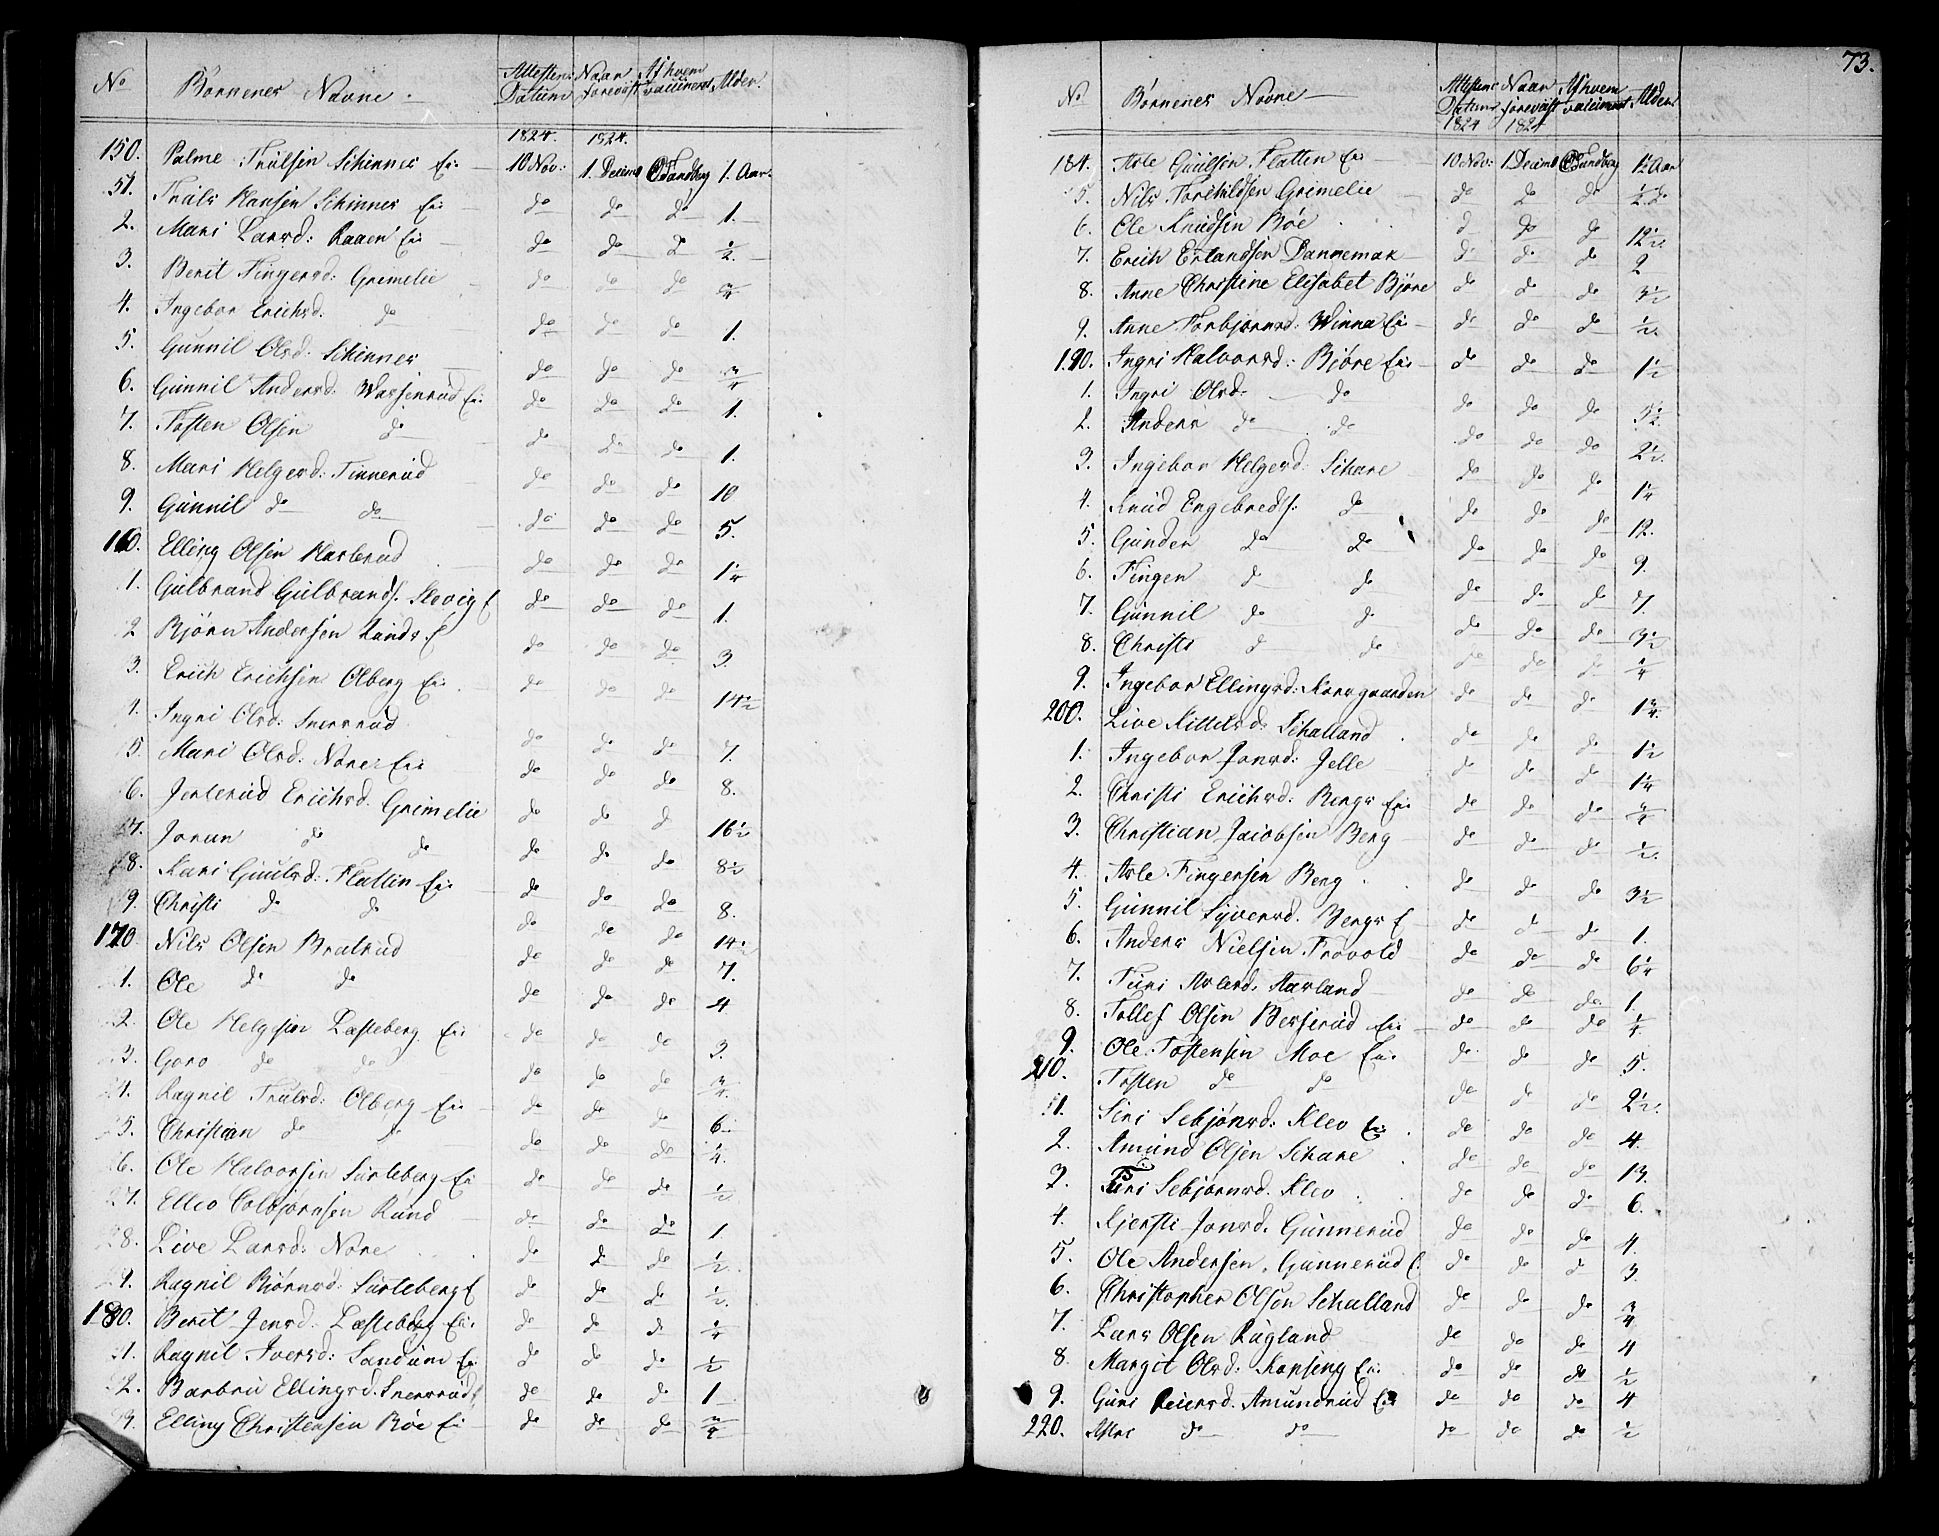 No Børnenes Navne. Attestens Datum Naar forevist Af hvem vaccineret Alder.
1824. 1824.
150. Palme Trulsen Schinnes Ei 10 Nov: 1. Decimb O Sandberg 1. Aar.
51. Truls Hansen Schinnes Ei do do do 1.
2. Mari Larsd: Raaen Ei do do do 1/2.
3. Berit Fingersd: Grimelie do do do 3/4
4. Ingebor Erichsd. do do do do 1.
5. Gunnil Olsd. Schinnes do do do 3/4
6. Gunnil Andersd. Warsenrud Ei. do do do 1.
7. Tosten Olsen do do do do 1.
8. Mari Helgesd: Finnerud do do do 10
9. Gunnil do do do do do 5.
160. Elling Olsen Karlsrud do do do 1 1/4
1. Gulbrand Gulbrands. Skovig E do do do 1.
2 Bjørn Andersen Runds. E do do do 3.
3. Erich Erichsen Olberg Ei. do do do 14 1/2
4. Ingri Olsd: Snersrud do do do 7.
5. Mari Olsd: Nores Ei do do do 8.
6. Jerterud Erichsd. Grimelie do do d 16 1/2
67. Joran do do do do do 8 1/2
68. Kari Guulsd: Flatten Ei do do do 8.
69. Christi do do do do do 14 1/2
170 Nils Olsen Bratrud do do do 7.
1. Ole do do do do do 4
2. Ole Helgesen Læsteberg Ei do do do 3.
3. Goro do do do do do 3/4.
4. Ragnil Trulsd: Olberg Ei do do do 6
5. Christian do do do do do 1/4.
6. Ole Halvorsen Surteberg Ei do do do 1/2
7. Ellev Colbjørnsen Rund do do do 1
8. Live Larsd: Nore do do do 1/2.
9. Ragnil Bjørnsd: Surteberg E do do do 1/2.
180. Berit Jensd. Læsteberg Ei. do do do 1/4
1. Ragnil Iversd: Sandum Ei do do do 1/2
2. Barbru Ellingsd. Snersrud E do do do 1
3. Elling Christensen Bøe Ei do do do 3/4
73.
No Børnenes Navne Attestens Datum Naar forevist Af hvem vaccineret Alder
1824 1824
184. Asle Guulsen Flatten Ei 10 Nov: 1 Decimb O Sandberg 1 1/2 Aar
5. Nils Torchildsen Grimelie do do do 1/2 do
6. Ole Knudsen Bøe d do do 12 1/2
7. Erich Erlandsen Dannemark do do do 2
8. Anne Christine Elisabet Bjøre do do do 3 1/2
9. Anne Torbjørnsd: Winna Ei do do do 1/2.
190. Ingri Halvorsd: Bjøre Ei do do do 1 1/2
1. Ingri Olsd. do do do do 3 1/2.
2. Anders do do do do do 2 1/2.
3. Ingebor Helgesd: Schare do do do 1 1/4
4. Knud Engebreds. do do do do 12.
5. Gunder do do do do do 9.
6. Finger do do do do do 7.
7. Gunnil do do do do do 3 1/2
8. Christi do do do do do 1/4
9. Ingebor Ellingsd: Korsgaarden do do do 1 3/4.
200. Live Kittelsd: Schalland do do do 1 1/2
1. Ingebor Jonsd: Jelle do do do 1 1/4
2. Christi Erichsd: Bergs Ei do do do 1/4
3. Christian Jacobsen Berg do do do 1/2.
4. Asle Fingersen Berg do do do 3 1/2
5. Gunnil Syversd. Bergs E do do do 1.
6. Anders Nielsen Frøvold do do do 6 1/4
7. Turi Aslesd. Aasland do do do 1.
8. Tollef Olsen Berserud Ei do do do 1/4
9. Ole Tostensen Moe Ei. do do do 5.
210. Tosten do do do do do 2 1/2.
11. Siri Sebjørnsd: Klev Ei do do do 4.
2. Amund Olsen Schare do do do 13.
3. Turi Sebjørnsd. Klev do do do 6.
4. Kjersti Jonsd. Gunnerud do do do 4.
5. Ole Andersen Gunnerud E. do do d 3
6. Christopher Olsen Schalland do do do 3/4
7. Lars Olsen Rugland do do do 4
8. Margit Olsd: Kansing Ei. do do do 1/2
9. Guri Reiersd. Amundrud Ei do do do 4
220. Astri do do do do do 1/2